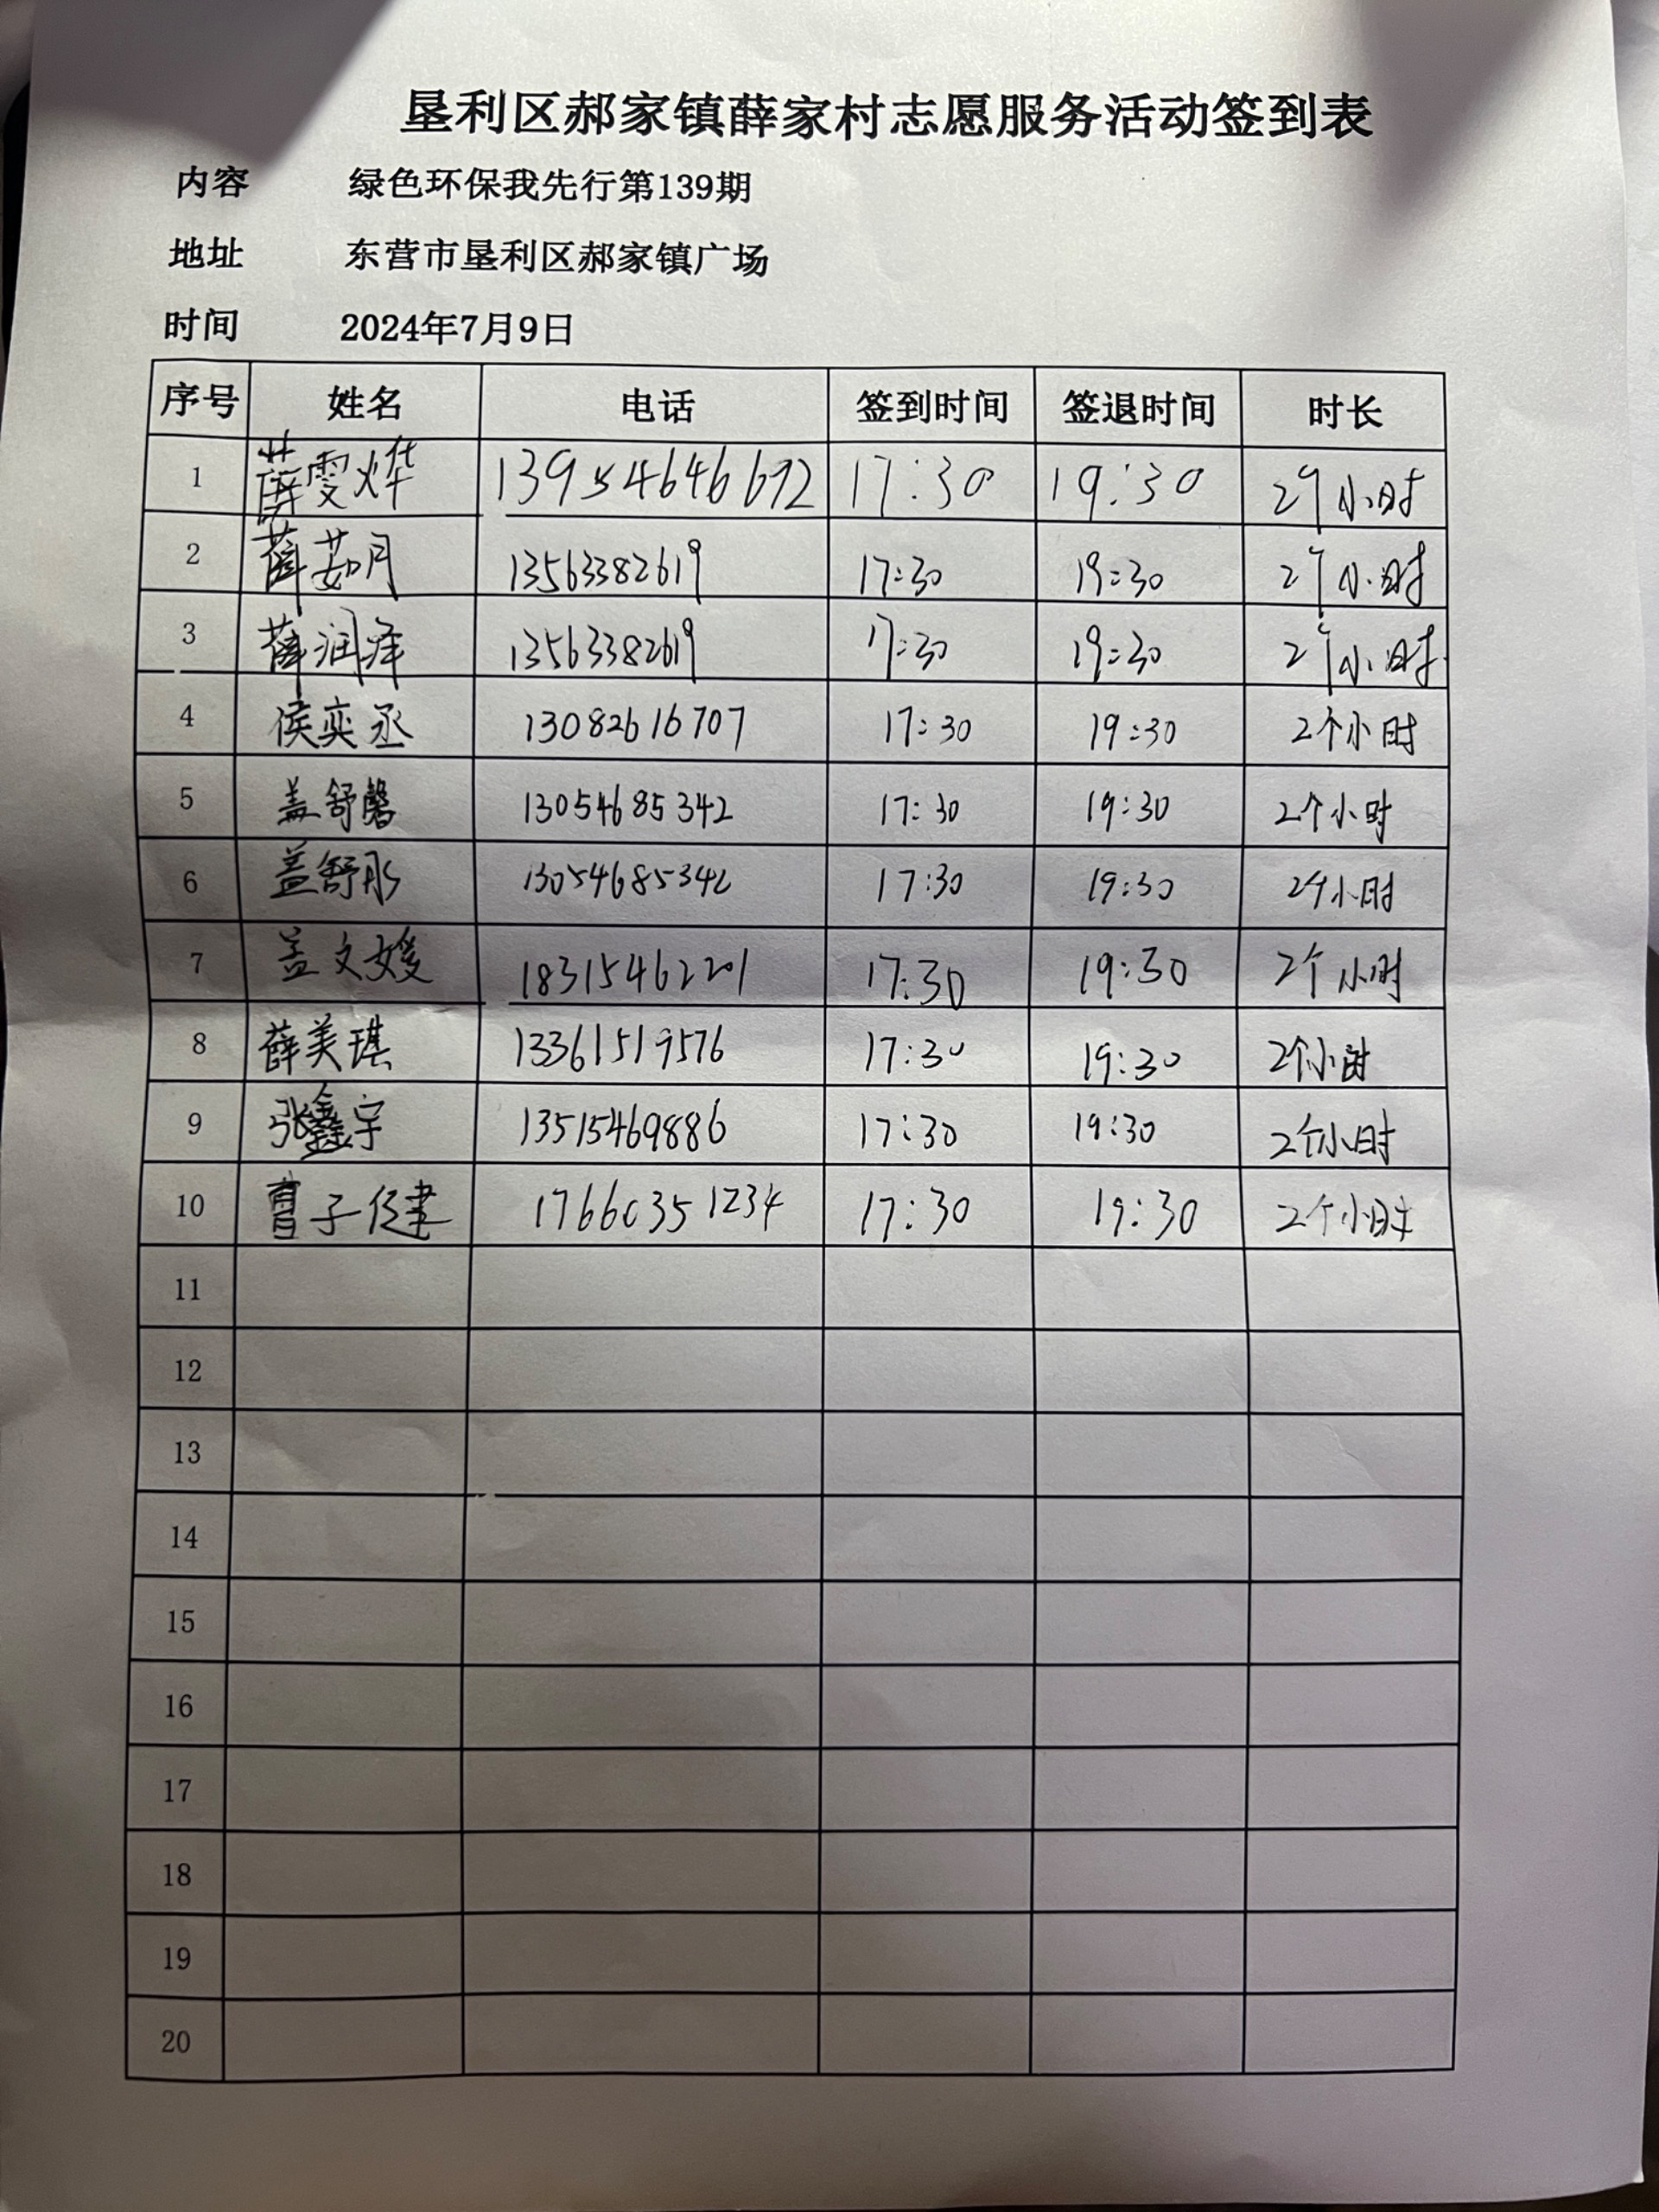 垦利区郝家镇薛家村志愿服务活动签到表
内容 绿色环保我先行第139期
地址 东营市垦利区郝家镇广场
时间 2024年7月9日
序号 姓名 电话 签到时间 签退时间 时长
1 薛雯烨 13954646692 17:30 19:30 2个小时
2 薛茹月 13563382619 17:30 19:30 2个小时
3 薛润泽 13563382619 17:30 19:30 2个小时
4 侯奕丞 13082616707 17:30 19:30 2个小时
5 盖舒馨 13054685342 17:30 19:30 2个小时
6 盖舒彤 13054685342 17:30 19:30 2个小时
7 盖文媛 18315462201 17:30 19:30 2个小时
8 薛美琪 13361519576 17:30 19:30 2个小时
9 张鑫宇 13515469886 17:30 19:30 2个小时
10 曹子健 17660351234 17:30 19:30 2个小时
11
12
13
14
15
16
17
18
19
20